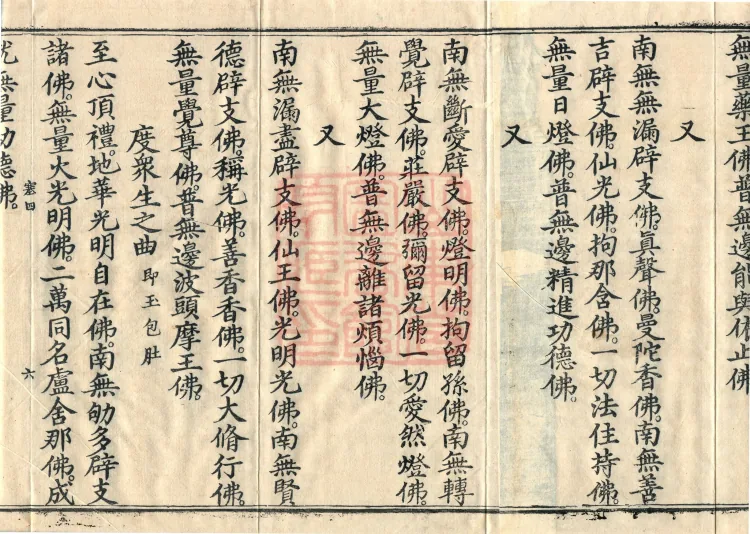 無量藥王佛。普無邊能與依止佛
又
南無無漏辟支佛。真聲佛。曼陀香佛。南無善
吉辟支佛。仙光佛。拘那含佛。一切法住持佛。
無量日燈佛。普無邊精進功德佛。
又
南無斷愛辟支佛。燈明佛。拘留孫佛。南無轉
覺辟支佛。莊嚴佛。彌留光佛。一切愛然燈佛。
無量大燈佛。普無邊離諸煩惱佛。
又
南無漏盡辟支佛。仙王佛。光明光佛。南無賢
德辟支佛。稱光佛。善香香佛。一切大脩行佛。
無量覺尊佛。普無邊波頭摩王佛。
度衆生之曲 即玉包肚
至心頂禮。地華光明自在佛。南無劬多辟支
諸佛。無量大光明佛。二萬同名盧舍那佛。成
就無量功德佛。
塞四 六